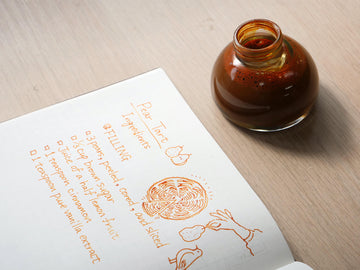 Pear Tart
Ingredients
@FILLING
□ 3 pears, peeled, cored, and sliced
□ ½ cup brown sugar
□ juice of a half lemon fruit
□ 1 teaspoon cinnamon
□ 1 teaspoon pure vanilla extract